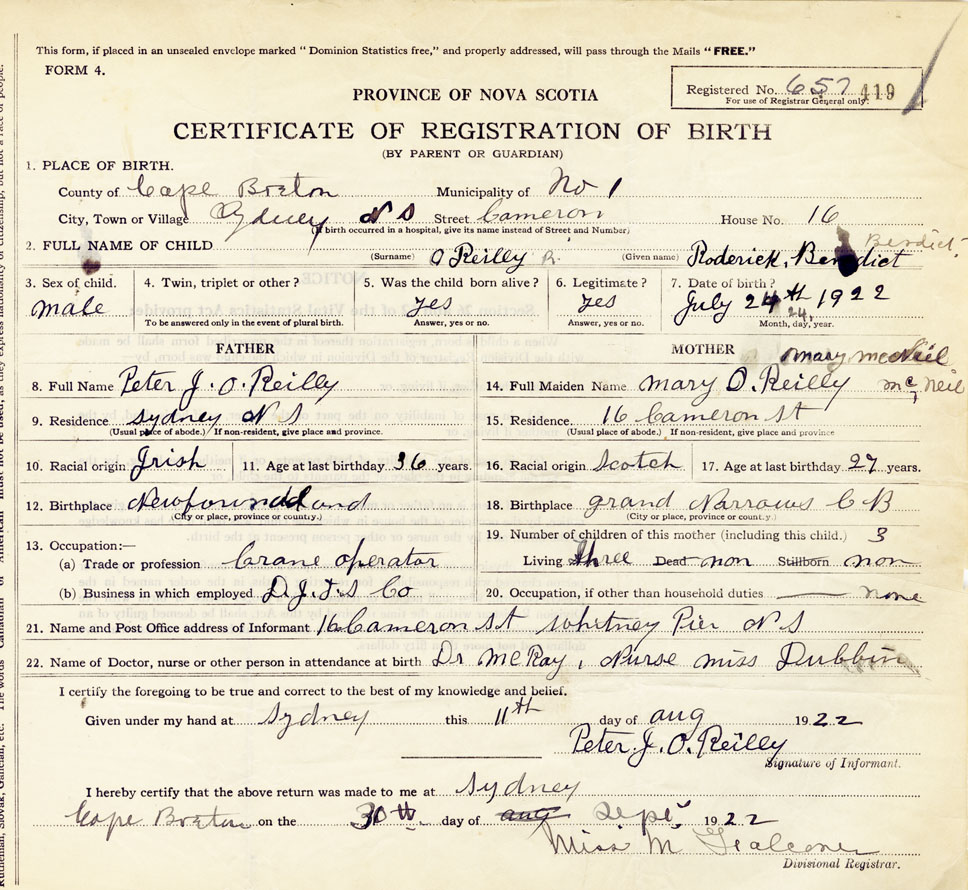 This form, if placed in an unsealed envelope marked “ Dominion Statistics free,” and properly addressed, will pass through the Mails “ FREE.”
FORM 4.
Registered No. 657 419
For use of Registrar General only.
PROVINCE OF NOVA SCOTIA
CERTIFICATE OF REGISTRATION OF BIRTH
(BY PARENT OR GUARDIAN)
1. PLACE OF BIRTH.
County of Cape Breton Municipality of No 1
City, Town or Village Sydney N S Street Cameron House No. 16
(If birth occurred in a hospital, give its name instead of Street and Number)
Benedict
2. FULL NAME OF CHILD O Reilly R. Roderick, Benedict
(Surname) (Given name)
3. Sex of child. 4. Twin, triplet or other? 5. Was the child born alive? 6. Legitimate? 7. Date of birth?
male yes yes July 24th 1922
24
To be answered only in the event of plural birth. Answer, yes or no. Answer, yes or no. Month, day, year.
FATHER MOTHER
mary mcNeil
8. Full Name Peter J. O. Reilly 14. Full Maiden Name mary O. Reilly mcNeil
9. Residence Sydney N S 15. Residence 16 Cameron St
(Usual place of abode.) If non-resident, give place and province. (Usual place of abode.) If non-resident, give place and province
10. Racial origin Irish 11. Age at last birthday 36 years. 16. Racial origin Scotch 17. Age at last birthday 27 years.
12. Birthplace Newfoundland 18. Birthplace grand Narrows C B
(City or place, province or county.) (City or place, province or county.)
13. Occupation:— 19. Number of children of this mother (including this child.) 3
(a) Trade or profession Crane operator Living three Dead non Stillborn non
(b) Business in which employed D. I. & S Co 20. Occupation, if other than household duties none
21. Name and Post Office address of Informant 16 Cameron St Whitney Pier N S
22. Name of Doctor, nurse or other person in attendance at birth Dr McRay, Nurse miss Dubbin
I certify the foregoing to be true and correct to the best of my knowledge and belief.
Given under my hand at Sydney this 11th day of aug 1922
Peter. J. O. Reilly
Signature of Informant.
I hereby certify that the above return was made to me at Sydney
Cape Breton on the 30th day of aug Sept 1922
Miss M Falconer
Divisional Registrar.